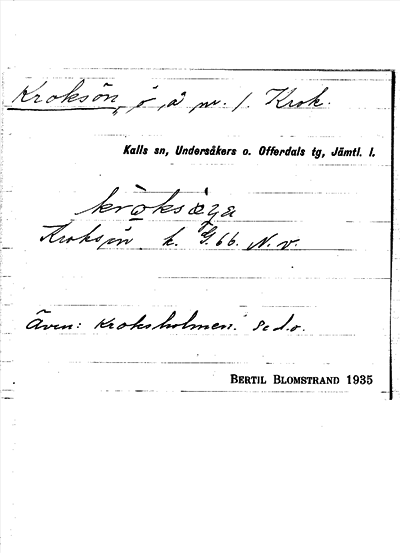 Kroksön, ö, å nr. 1. Krok.
Kalls sn, Undersåkers o. Offerdals tg, Jämtl. l.
Kroksön k. G. 66. N. v.
Även: Kroksholmen. Se d.o.
BERTIL BLOMSTRAND 1935